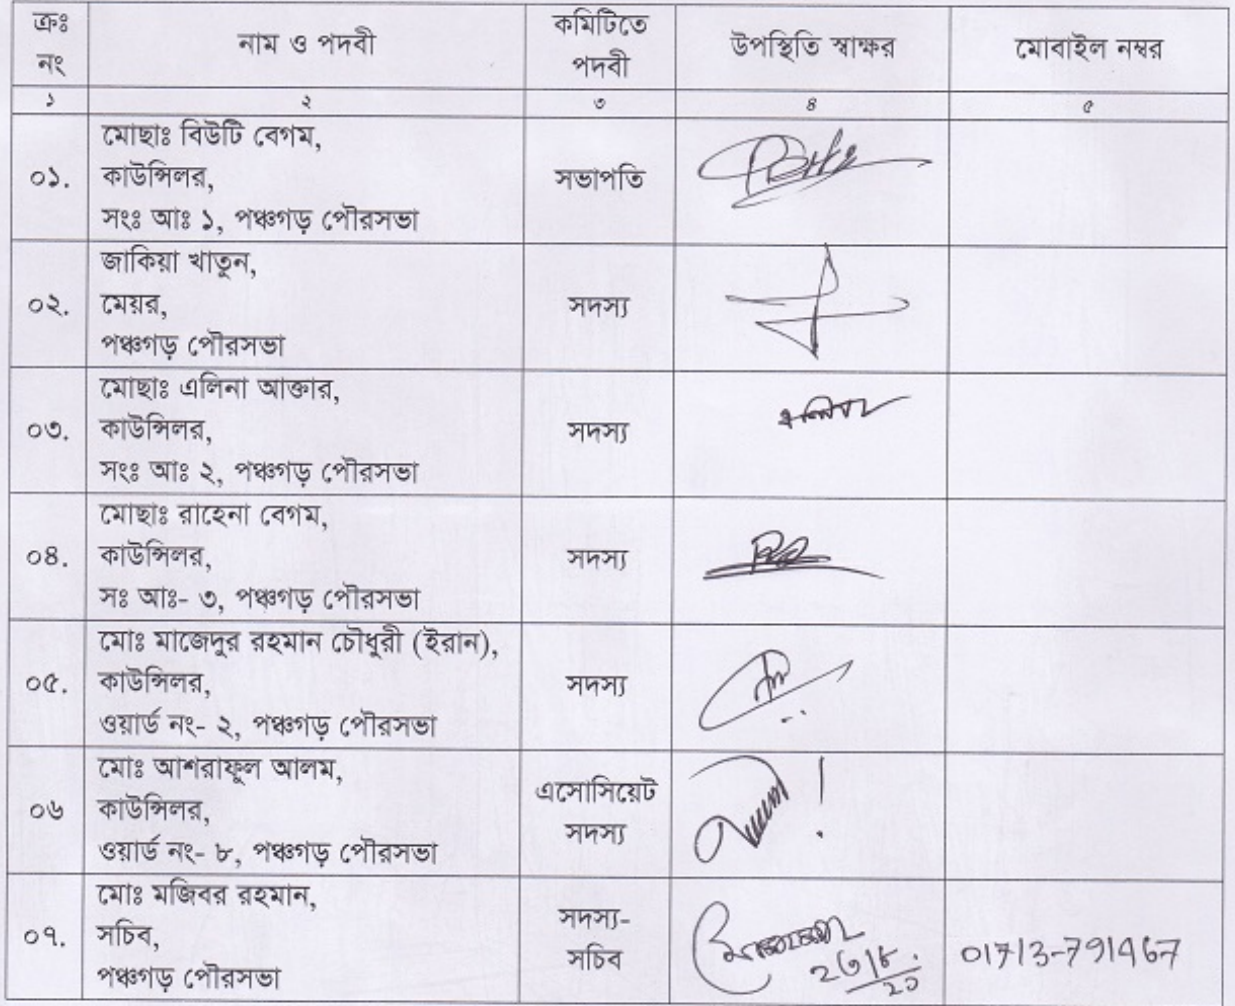 ক্রঃ নং | নাম ও পদবী | কমিটিতে পদবী | উপস্থিতি স্বাক্ষর | মোবাইল নম্বর
১ | ২ | ৩ | ৪ | ৫
০১.
মোছাঃ বিউটি বেগম,
কাউন্সিলর,
সংঃ আঃ ১, পঞ্চগড় পৌরসভা
সভাপতি
০২.
জাকিয়া খাতুন,
মেয়র,
পঞ্চগড় পৌরসভা
সদস্য
০৩.
মোছাঃ এলিনা আক্তার,
কাউন্সিলর,
সংঃ আঃ ২, পঞ্চগড় পৌরসভা
সদস্য
০৪.
মোছাঃ রাহেনা বেগম,
কাউন্সিলর,
সঃ আঃ- ৩, পঞ্চগড় পৌরসভা
সদস্য
০৫.
মোঃ মাজেদুর রহমান চৌধুরী (ইরান),
কাউন্সিলর,
ওয়ার্ড নং- ২, পঞ্চগড় পৌরসভা
সদস্য
০৬
মোঃ আশরাফুল আলম,
কাউন্সিলর,
ওয়ার্ড নং- ৮, পঞ্চগড় পৌরসভা
এসোসিয়েট
সদস্য
০৭.
মোঃ মজিবর রহমান,
সচিব,
পঞ্চগড় পৌরসভা
সদস্য-
সচিব
01713-791467